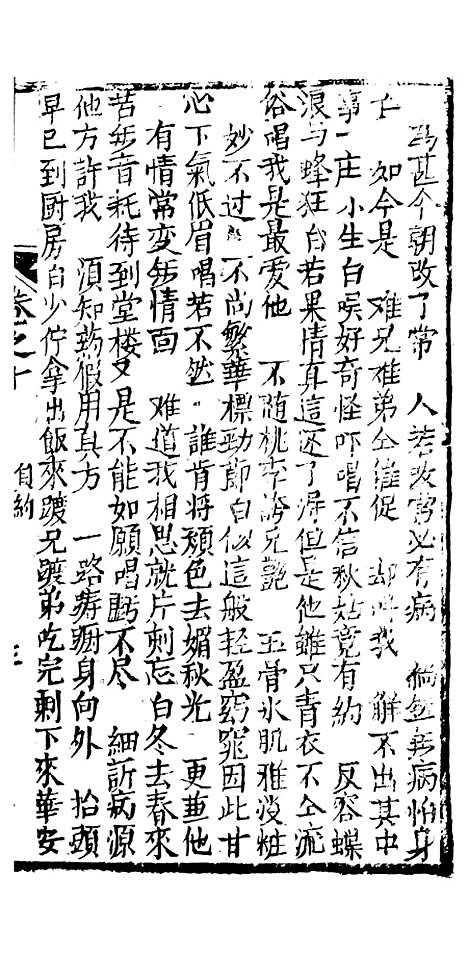 為甚今朝改了常　人若改常必有病　倘並無病怕身
亡　如今是　难兄难弟仝催促　却叫我　解不出其中
事一庄小生白唉好奇怪吓唱不信秋姑竟有約　反容蝶
浪与蜂狂白若果情真這还了得但是他雖只青衣不仝流
俗唱我是最爱他　不随桃李誇兒艷　玉骨氷肌雅淡粧
妙不过　不尚繁華標勁節白似這般轻盈窈窕因此甘
心下氣低眉唱若不然　誰肯将颜色去媚秋光　更兼他
有情常变無情面　难道我相思就片刻忘白冬去春來
苦無音耗待到堂楼又是不能如願唱訴不尽　細訴病源
他方許我　須知药假用真方　一路寿痴身向外　抬頭
早已到厨房白少佇拿出飯來踱兄踱弟吃完剩下來華安
卷之十　自約　三